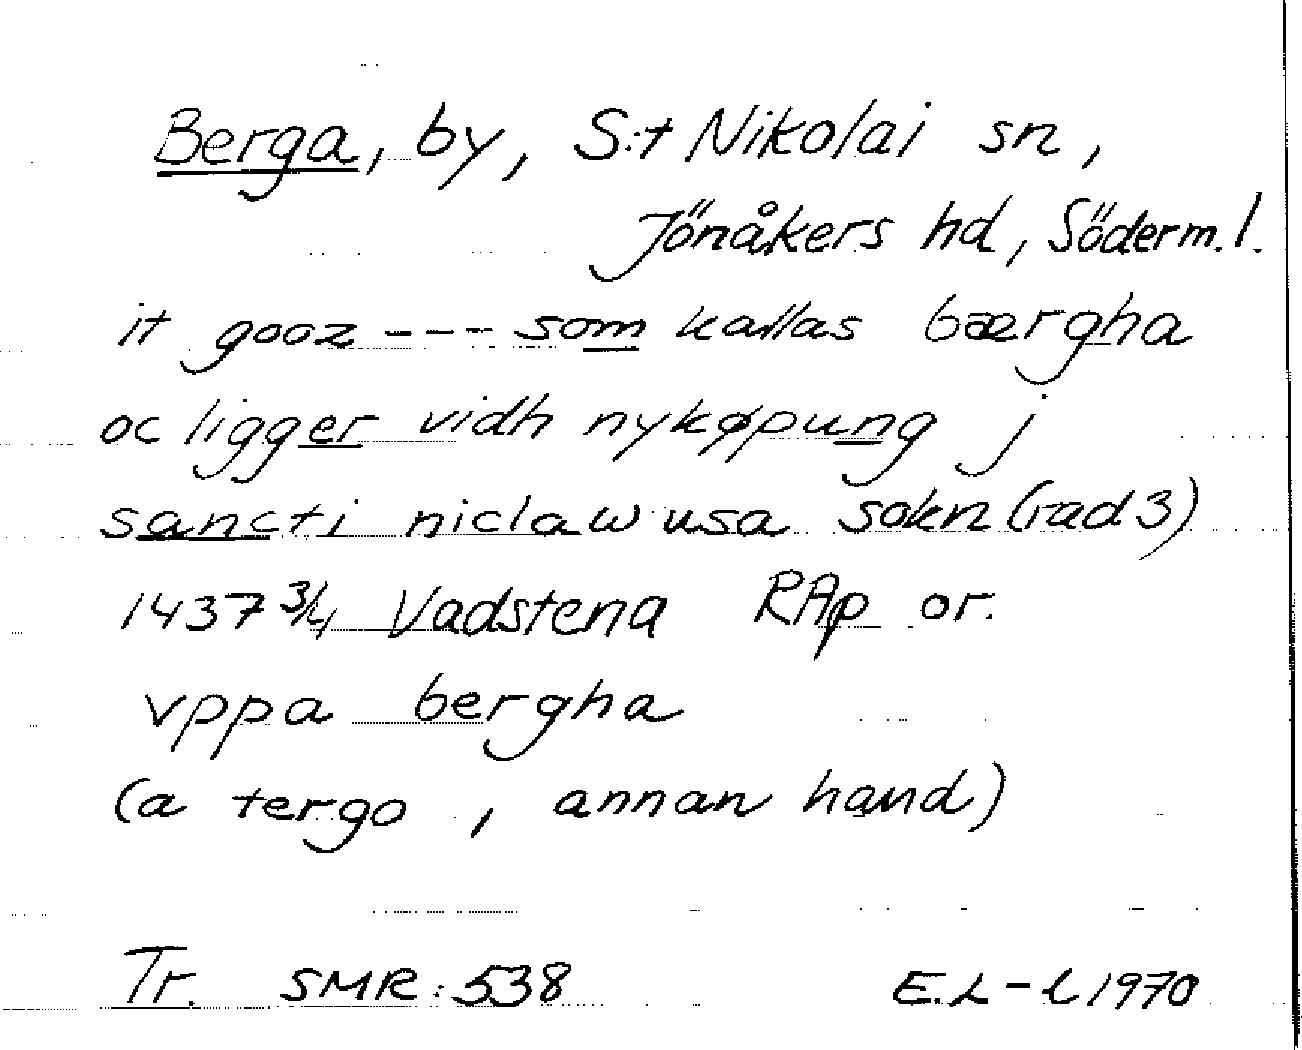 Berga, by, S:t Nikolai sn,
Jönåkers hd, Söderm. l.
it gooz --- som kallas bærgha
oc ligger vidh nykøpung j
sancti niclawusa sokn (rad 3)
1437 3/4 Vadstena RAp or.
vppa bergha
(a tergo, annan hand)
Tr. SMR: 538 E.L-l 1970